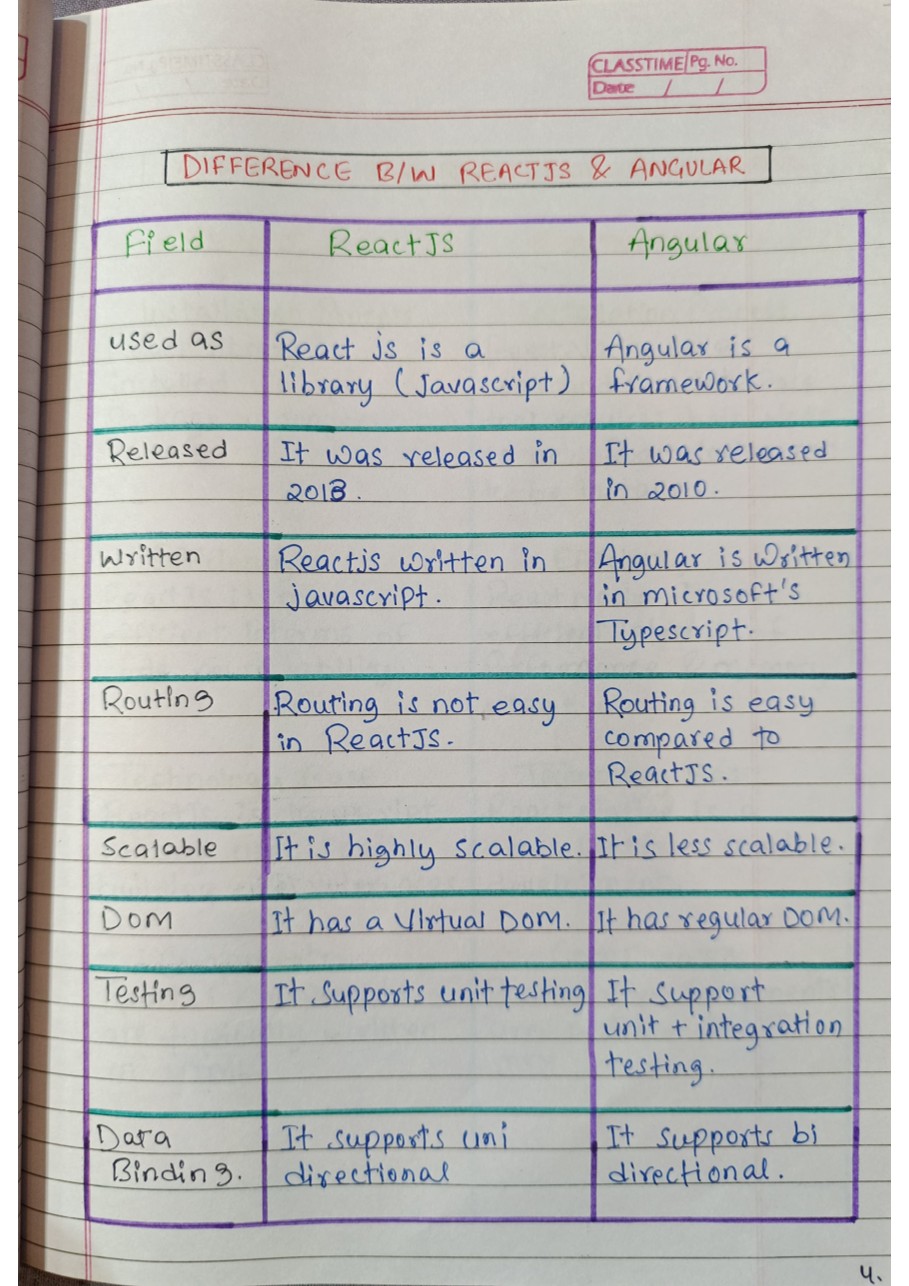 CLASSTIME Pg. No.
Date / /
DIFFERENCE B/W REACTJS & ANGULAR
Field ReactJS Angular
used as React js is a Angular is a
library (Javascript) framework.
Released It was released in It was released
2013. in 2010.
Written Reactjs written in Angular is Written
javascript. in microsoft's
Typescript.
Routing Routing is not easy Routing is easy
in ReactJS. compared to
ReactJS.
Scalable It is highly scalable. It is less scalable.
Dom It has a Virtual DOM. It has regular DOM.
Testing It supports unit testing It support
unit + integration
testing.
Data It supports uni It supports bi
Binding. directional directional.
4.